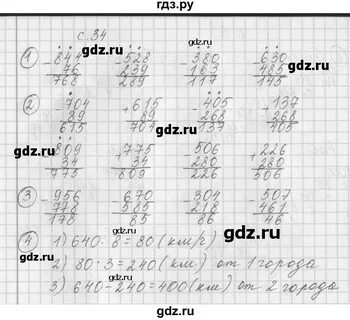 гдз.ру
с. 34
① - 844 - 528 - 380 - 630
76 239 163 485
768 289 117 145
② - 704 + 615 - 405 + 137
89 89 268 268
615 704 137 405
- 809 + 775 - 506 + 226
34 34 280 280
775 809 226 506
③ - 956 - 670 - 304 - 507
778 585 218 461
178 85 86 46
④ 1) 640 : 8 = 80 (км/ч)
2) 80 · 3 = 240 (км) от 1 города
3) 640 - 240 = 400 (км) от 2 города
gdz.ru
gdz.ru
gdz.ru
gdz.ru
gdz.ru
gdz.ru
gdz.ru